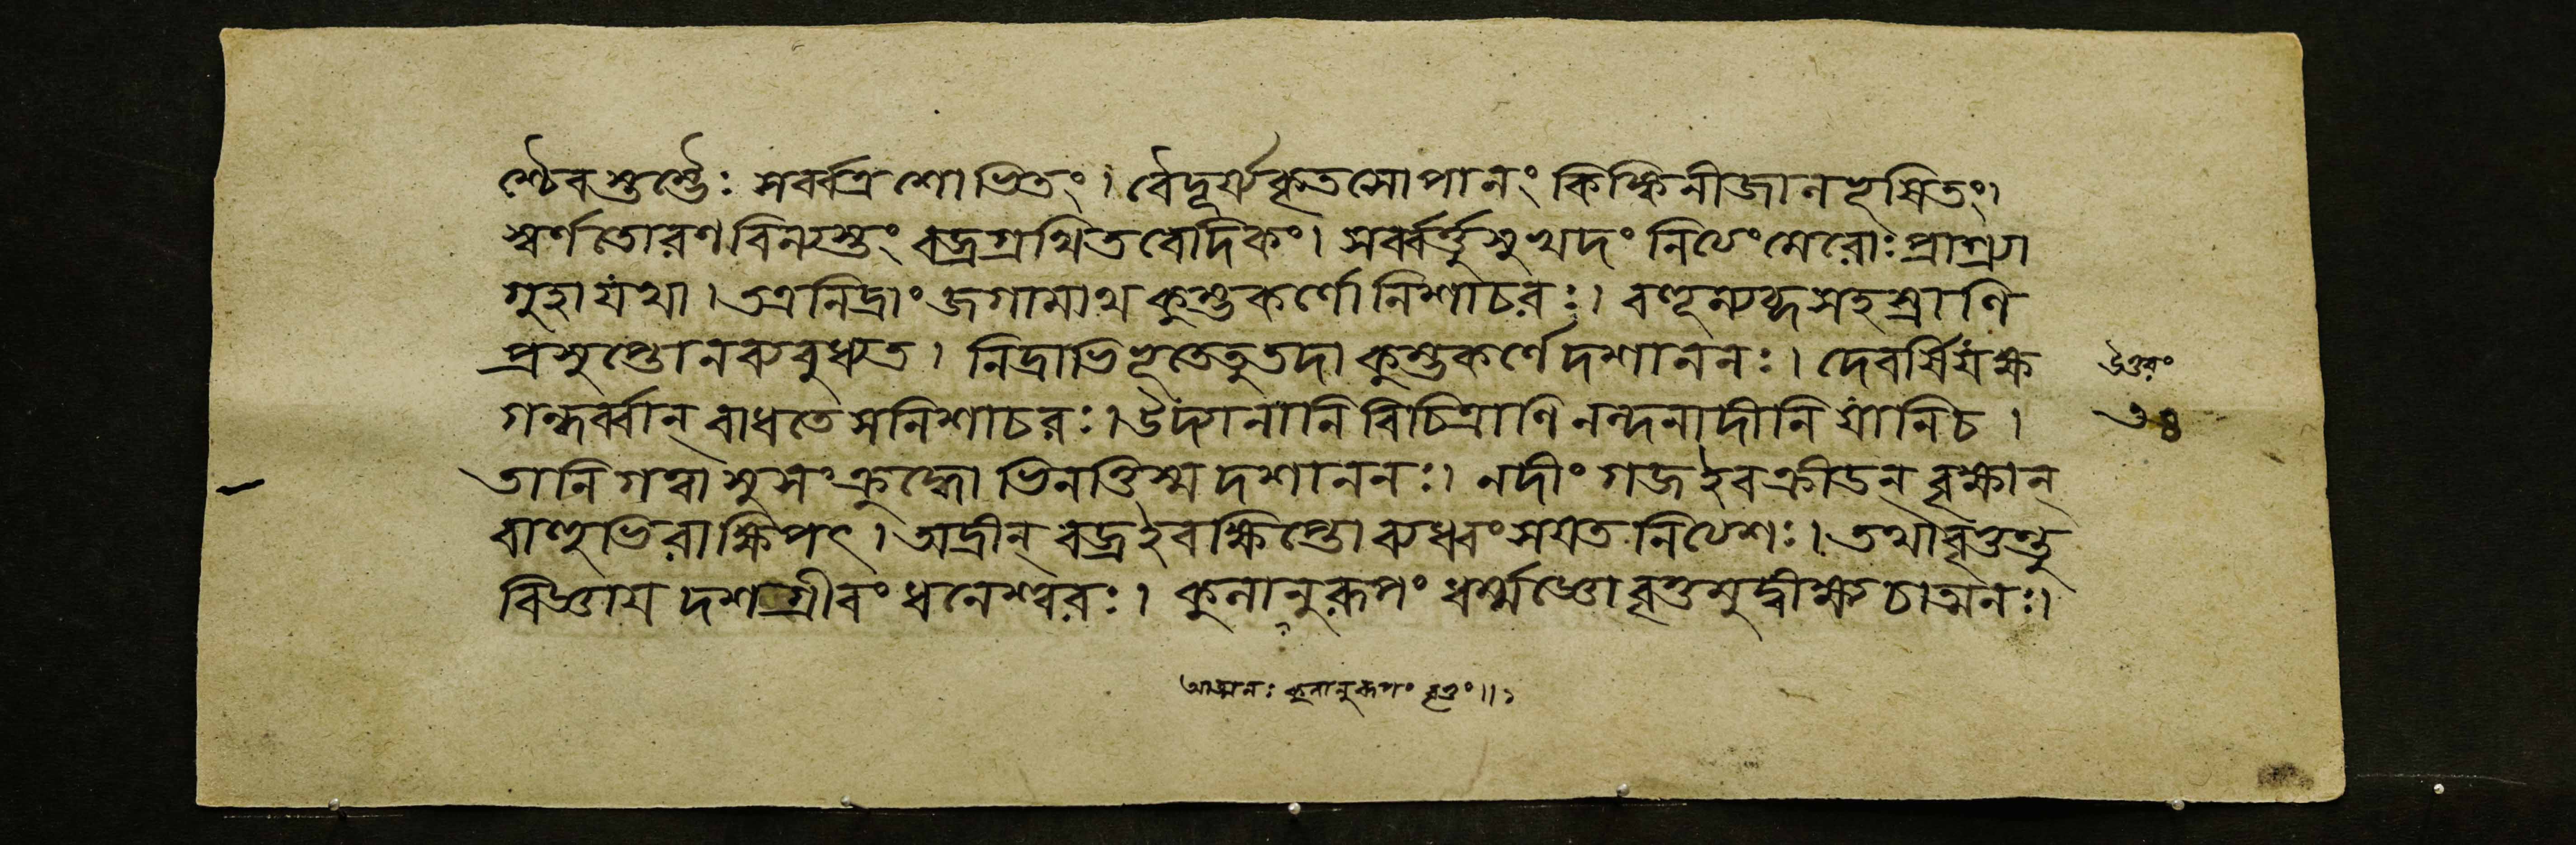 শ্চৈবশুম্ভৈঃ সর্ব্বত্রশোভিতং। বৈদূর্য্যকৃতসোপানং কিঙ্কিনীজালভূষিতং।
স্বর্ণতোরণবিন্যস্তং বজ্রগ্রথিতবেদিকং। সর্ব্বর্ত্তুসুখদং নিত্যংমেরোঃ প্রাগ্রগ
গুহাযথা। তত্রনিদ্রাং জগামাথ কুম্ভকর্ণোনিশাচরঃ। বহূন্যব্দসহস্রাণি
প্রসুপ্তোনব্যবুধ্যত। নিদ্রাভিভূতেতুতদা কুম্ভকর্ণেদশাননঃ। দেবর্ষিযক্ষ
গন্ধর্ব্বান্ বাধতে সনিশাচরঃ। উদ্যানানি বিচিত্রাণি নন্দনাদীনি যানিচ।
তানি গত্বা সুসংক্রুদ্ধো ভিনত্তিস্ম দশাননঃ। নদীং গজইবক্রীডন্ বৃক্ষান্
বায়ুভিরাক্ষিপৎ। অদ্রীন্ বজ্রইবক্ষিপ্তো ব্যধ্বংসযত নিত্যশঃ। তথাবৃত্তন্তু
বিজ্ঞায দশগ্রীবং ধনেশ্বরঃ। কুলানুরূপং ধর্ম্মজ্ঞো বৃত্তমুদ্বীক্ষ্য চাত্মনঃ।
উত্তরং
৩৪
আত্মনঃ কুলানুরূপং বৃত্তং॥